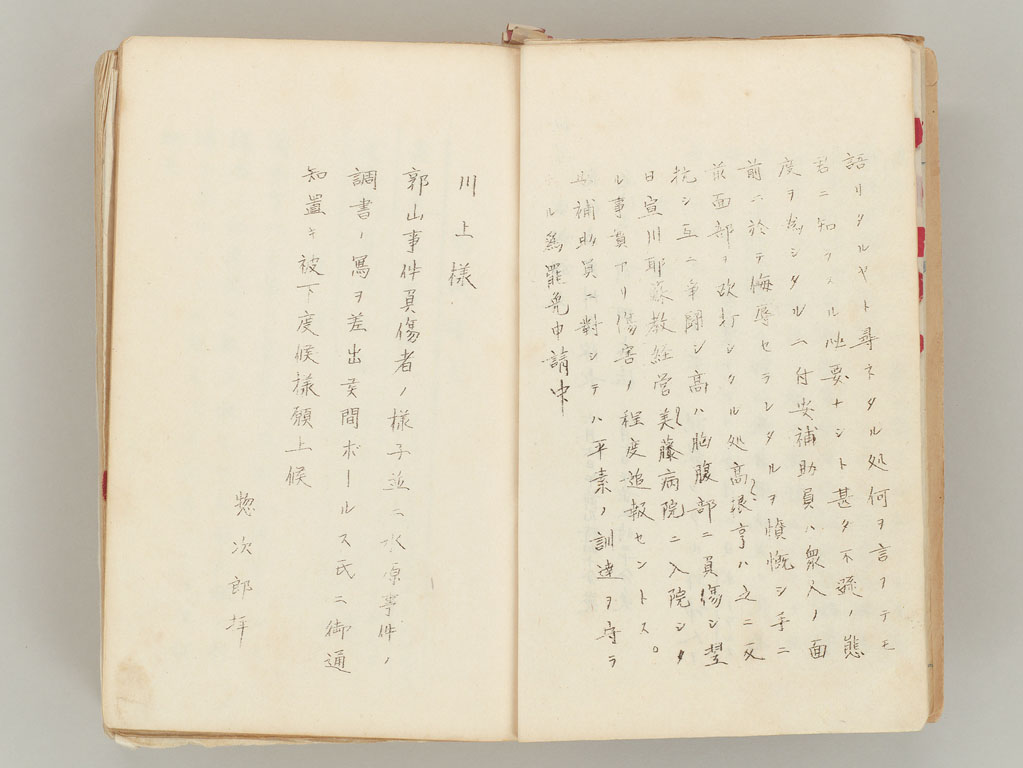 語リタルヤト尋ネタル処何ヲ言フテモ
君ニ知ラスル必要ナシト甚タ不遜ノ態
度ヲ為シタルニ付安補助員ハ衆人ノ面
前ニ於テ侮辱セラレタルヲ憤慨シ手ニ
前面部ヲ欧打シタル処高銀亨ハ之ニ反
抗シ互ニ争闘シ高ハ胸腹部ニ負傷シ翌
日宣川耶蘇教経営美藤病院ニ入院シタ
ル事実アリ傷害ノ程度追報セントス。
補助員ニ対シテハ平素ノ訓達ヲ守ラ
ル為罷免申請中
川上様
郭山事件負傷者ノ様子並ニ水原事件ノ
調書ノ写ヲ差出候間ボールス氏ニ御通
知置キ被下度候様願上候
惣次郎拝